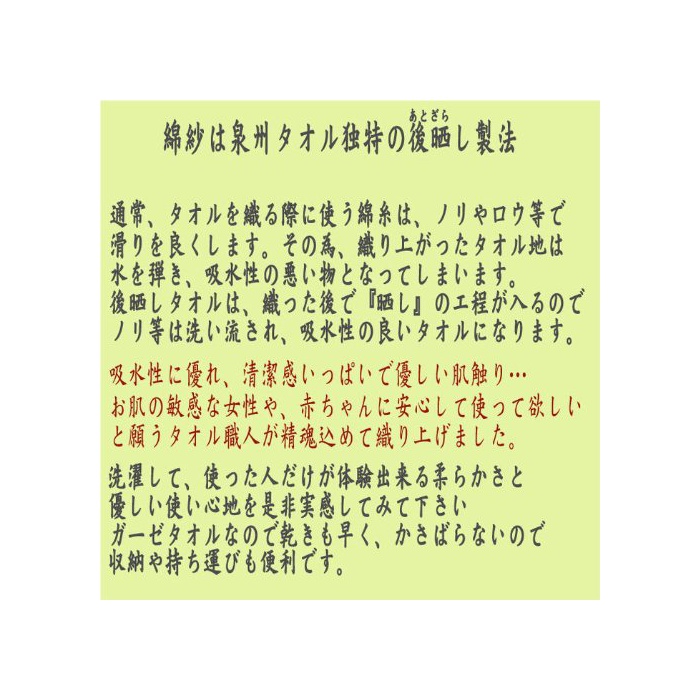 あとざら
綿紗は泉州タオル独特の後晒し製法
通常、タオルを織る際に使う綿糸は、ノリやロウ等で
滑りを良くします。その為、織り上がったタオル地は
水を弾き、吸水性の悪い物となってしまいます。
後晒しタオルは、織った後で『晒し』の工程が入るので
ノリ等は洗い流され、吸水性の良いタオルになります。
吸水性に優れ、清潔感いっぱいで優しい肌触り…
お肌の敏感な女性や、赤ちゃんに安心して使って欲しい
と願うタオル職人が精魂込めて織り上げました。
洗濯して、使った人だけが体験出来る柔らかさと
優しい使い心地を是非実感してみて下さい
ガーゼタオルなので乾きも早く、かさばらないので
収納や持ち運びも便利です。